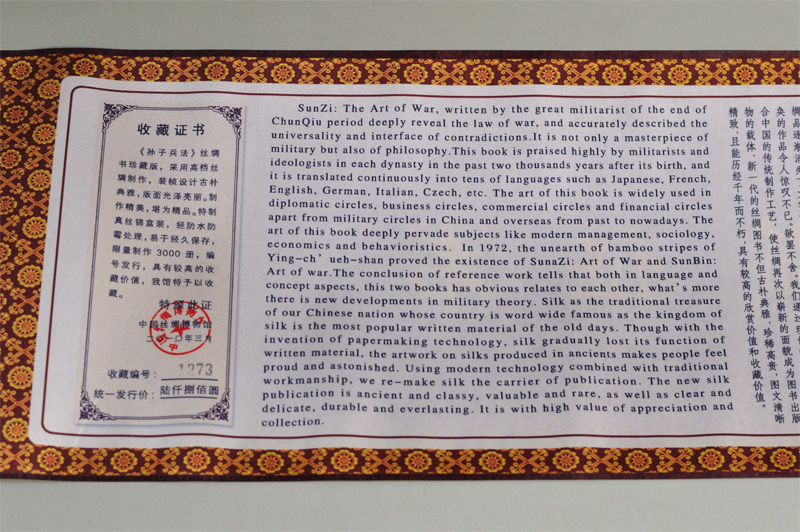 收藏证书
《孙子兵法》丝绸
书珍藏版，采用高档丝
绸制作，装帧设计古朴
典雅，版面光泽亮丽。制
作精美，堪为精品。特制
真丝锦盒装，经防水防
霉处理，易于经久保存，
限量制作 3000 册，编
号发行，具有较高的收
藏价值，我馆特予以收
藏。
特颁此证
中国丝绸博物馆
二〇一〇年三月
收藏编号: 1273
统一发行价: 陆仟捌佰圆
SunZi: The Art of War, written by the great militarist of the end of
ChunQiu period deeply reveal the law of war, and accurately described the
universality and interface of contradictions.It is not only a masterpiece of
military but also of philosophy.This book is praised highly by militarists and
ideologists in each dynasty in the past two thousands years after its birth, and
it is translated continuously into tens of languages such as Japanese, French,
English, German, Italian, Czech, etc. The art of this book is widely used in
diplomatic circles, business circles, commercial circles and financial circles
apart from military circles in China and overseas from past to nowadays. The
art of this book deeply pervade subjects like modern management, sociology,
economics and behavioristics. In 1972, the unearth of bamboo stripes of
Ying-ch' ueh-shan proved the existence of SunaZi: Art of War and SunBin:
Art of war.The conclusion of reference work tells that both in language and
concept aspects, this two books has obvious relates to each other, what's more
there is new developments in military theory. Silk as the traditional treasure
of our Chinese nation whose country is word wide famous as the kingdom of
silk is the most popular written material of the old days. Though with the
invention of papermaking technology, silk gradually lost its function of
written material, the artwork on silks produced in ancients makes people feel
proud and astonished. Using modern technology combined with traditional
workmanship, we re-make silk the carrier of publication. The new silk
publication is ancient and classy, valuable and rare, as well as clear and
delicate, durable and everlasting. It is with high value of appreciation and
collection.
绸品逐渐消失
奂的作品令人惊叹不已。欲罢不舍。我们通过现代
合中国的传统制作工艺，使丝绸再次以崭新的面貌成为图书出版
物的载体，新一代的丝绸图书不但古朴典雅，珍稀高贵，图文清晰
精致，且能历经千年而不朽，具有较高的欣赏价值和收藏价值。